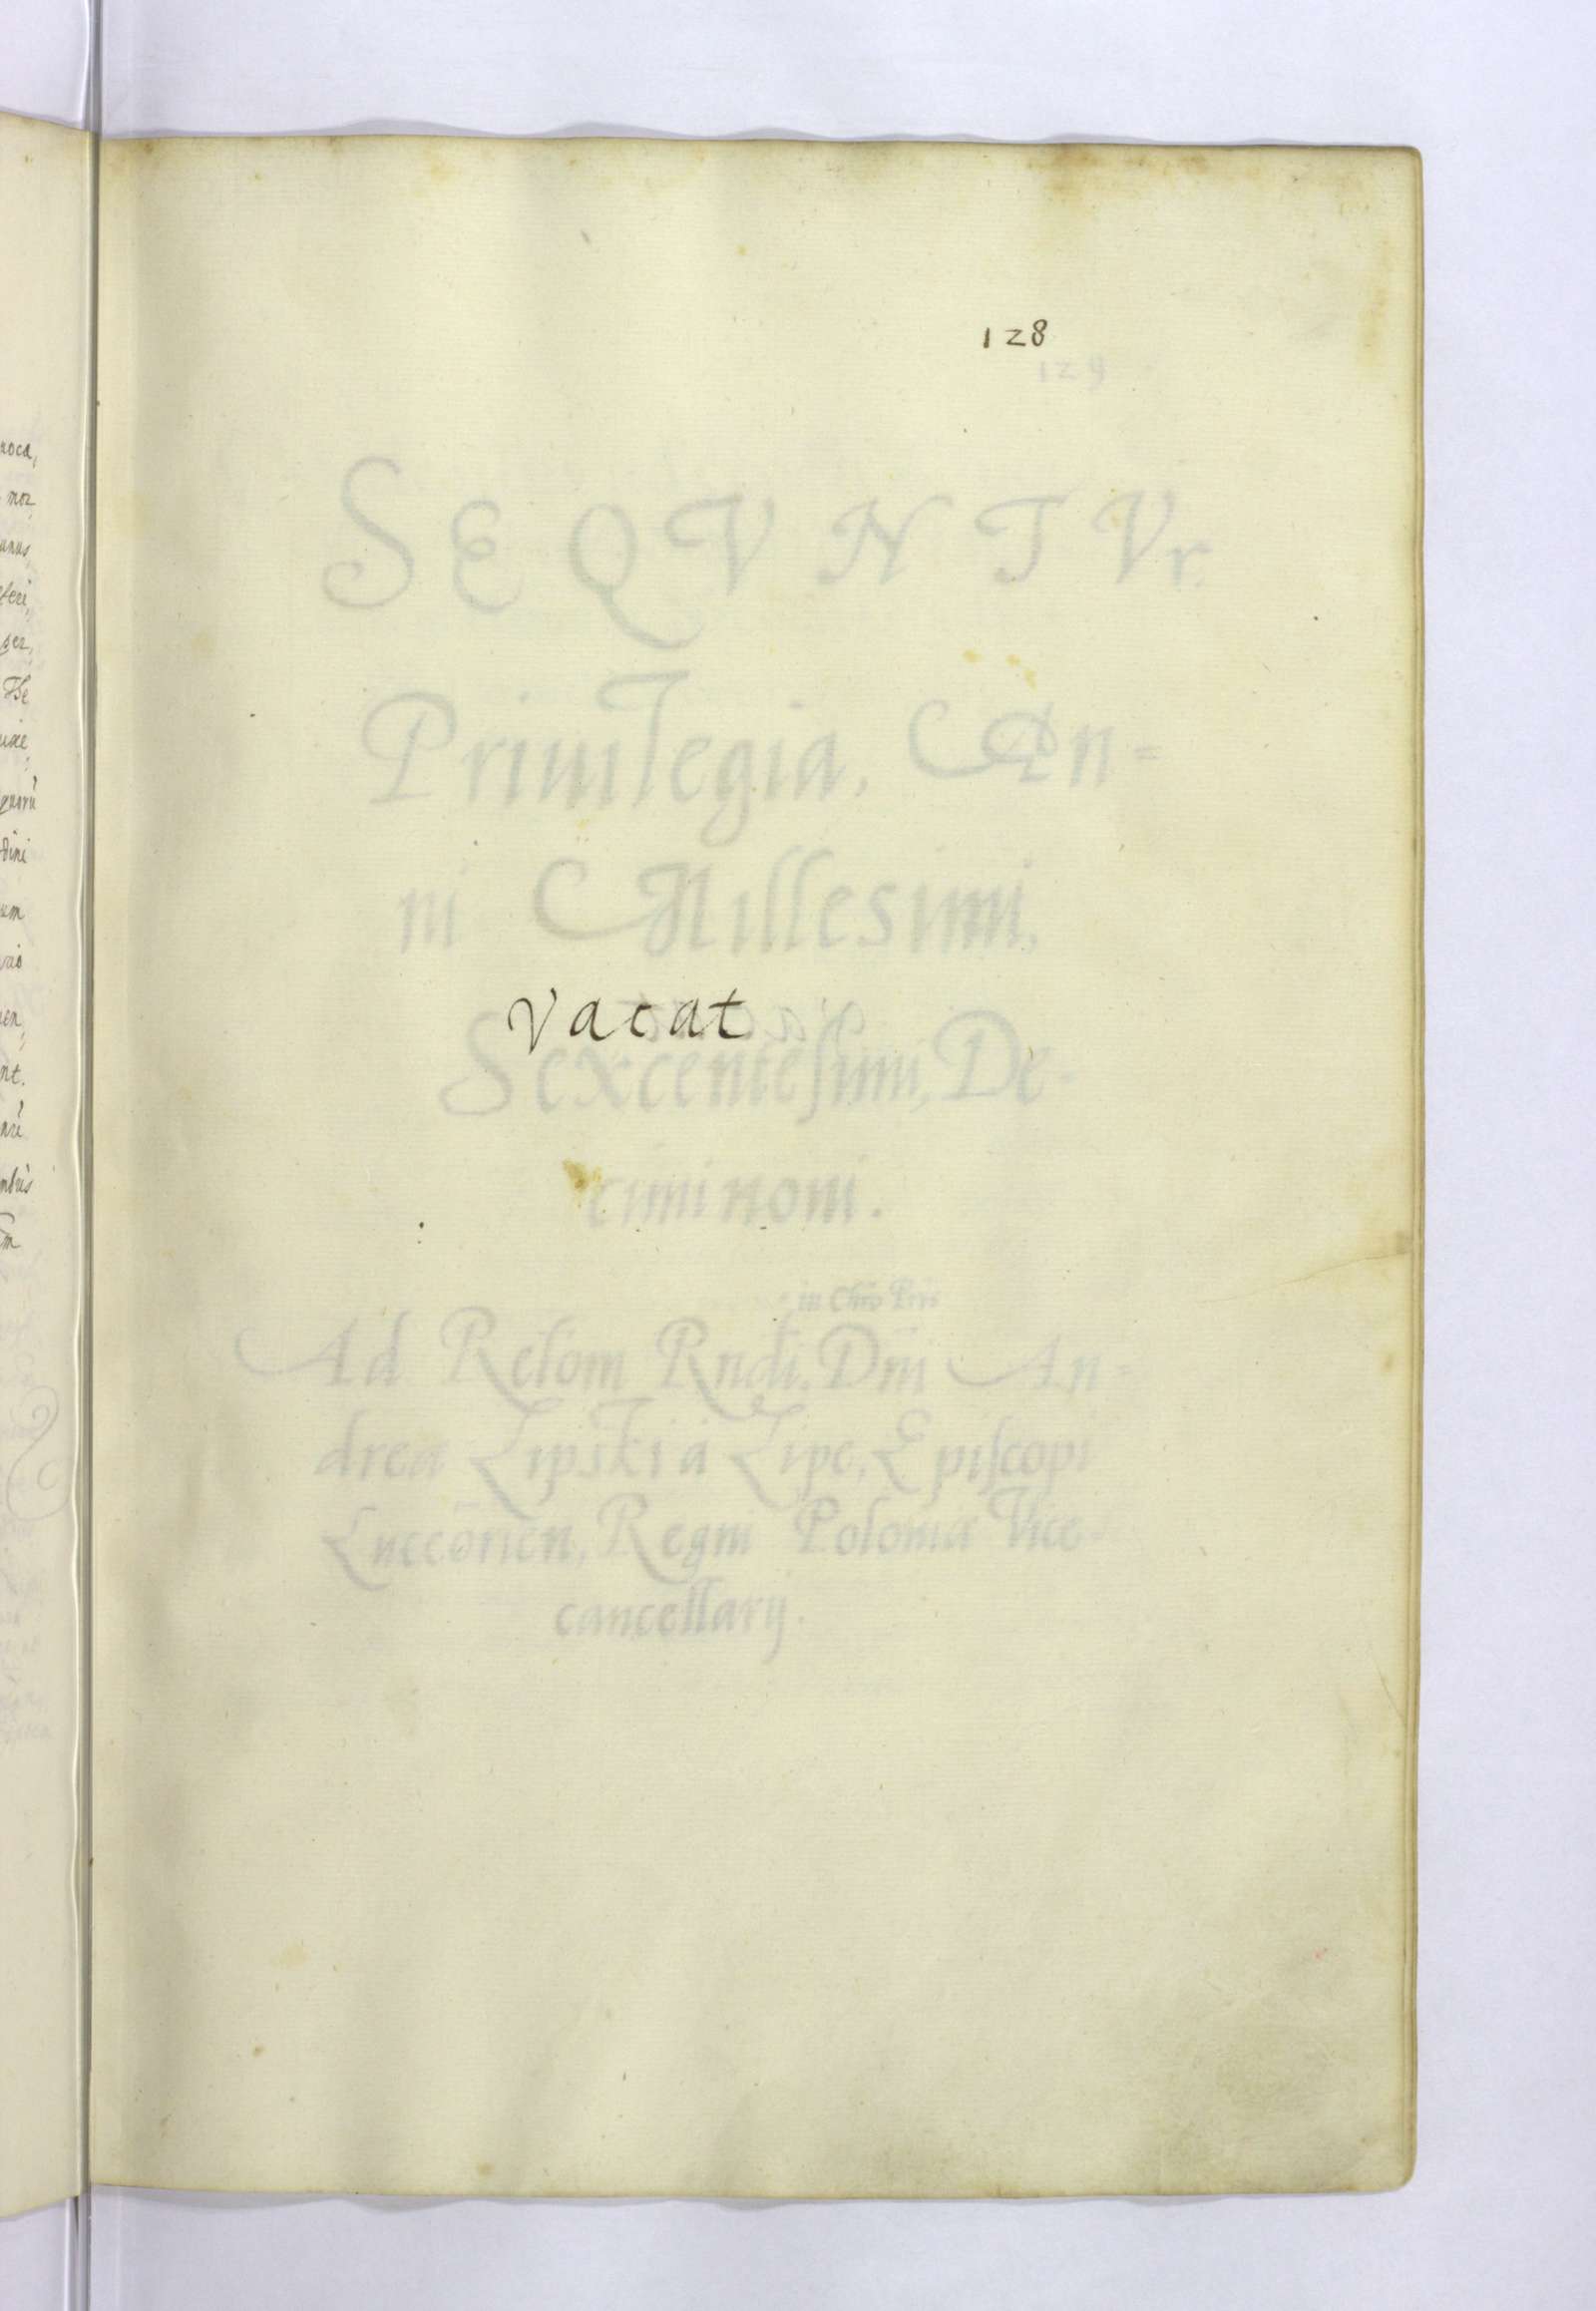 128
129
SEQVNTVr
Priuilegia, An=
ni Millesimi,
vacat
Sexcentesimi, De-
cimi noni.
in Chro Pris
Ad Relom Rndi. Dni An=
drea Lipski a Lipe, Episcopi
Luceorien, Regni Polonia Vice
cancellarij.